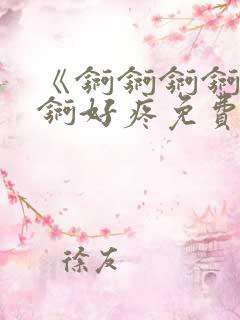 《锕锕锕锕
锕好疼免费
徐友